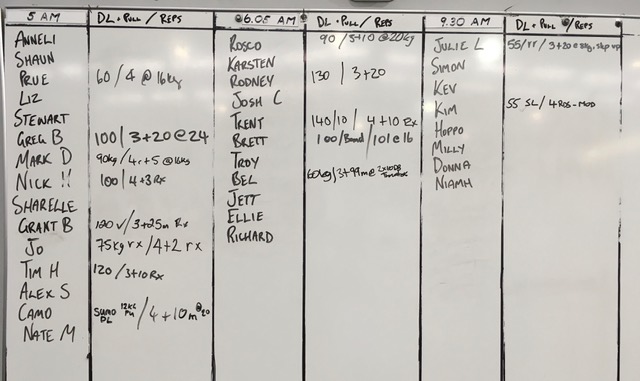 5 AM
DL + Pull / Reps
ANNELI
SHAUN
PRUE 60/4 @ 16kg
LIZ
STEWART
GREG B 100/3+20@24
MARK D 90kg/4r+5@16kg
NICK !! 100/4+3 Rx
SHARELLE
GRANT B 120 /3+25m Rx
JO 75kg rx/4+2 rx
TIM H 120/3+10 Rx
ALEX S
CAMO SUMO DL 12KG /4+10m@20
NATE M
6.05 AM
DL + Pull / Reps
ROSCO 90/3+10@20kg
KARSTEN
RODNEY 130/3+20
JOSH C
TRENT 140/10/4+10 Rx
BRETT 100/Band/101@16
TROY
BEL 60kg/3+99m@
JETT
ELLIE
RICHARD
9.30 AM
DL + Pull / Reps
JULIE L 55/rr/3+20@8kg, stp up
SIMON
KEV
KIM 55 SL/4RDS-MOD
HOPPO
MILLY
DONNA
NIAMH